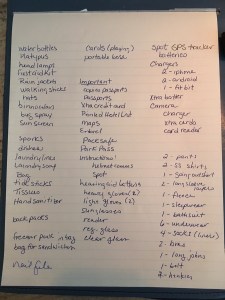 water bottles
Platypus
head lamps
First aid kit
Rain jackets
walking sticks
hats
binoculars
bug spray
Sun screen
sporks
dishes
laundry line
laundry soap
Bag
tide sticks
Tissues
Hand Sanitizer
back packs
freezer pack
bag for sandwich
nail file
cards (playing)
portable hose
Important
copies passports
Passports
Xtra credit card
Printed Hotel List
maps
Packsafe
Park Pass
Instructions
helmet rooms
spot
hearing aid batteries
heavy gloves (2)
light gloves (2)
sunglasses
reader
reg. glass
clear glass
Spot GPS tracker
batteries
Chargers
2 - iphone
2 - android
1 - fitbit
Xtra batter
Camera
charger
xtra cards
card reader
2 pants
4 - SS shirts
2 - long sleeve
1 - fleece
1 - sleepwear
1 - bathsuit
6 - underwear
4 - socks
2 - bras
1 - long johns
1 - belt